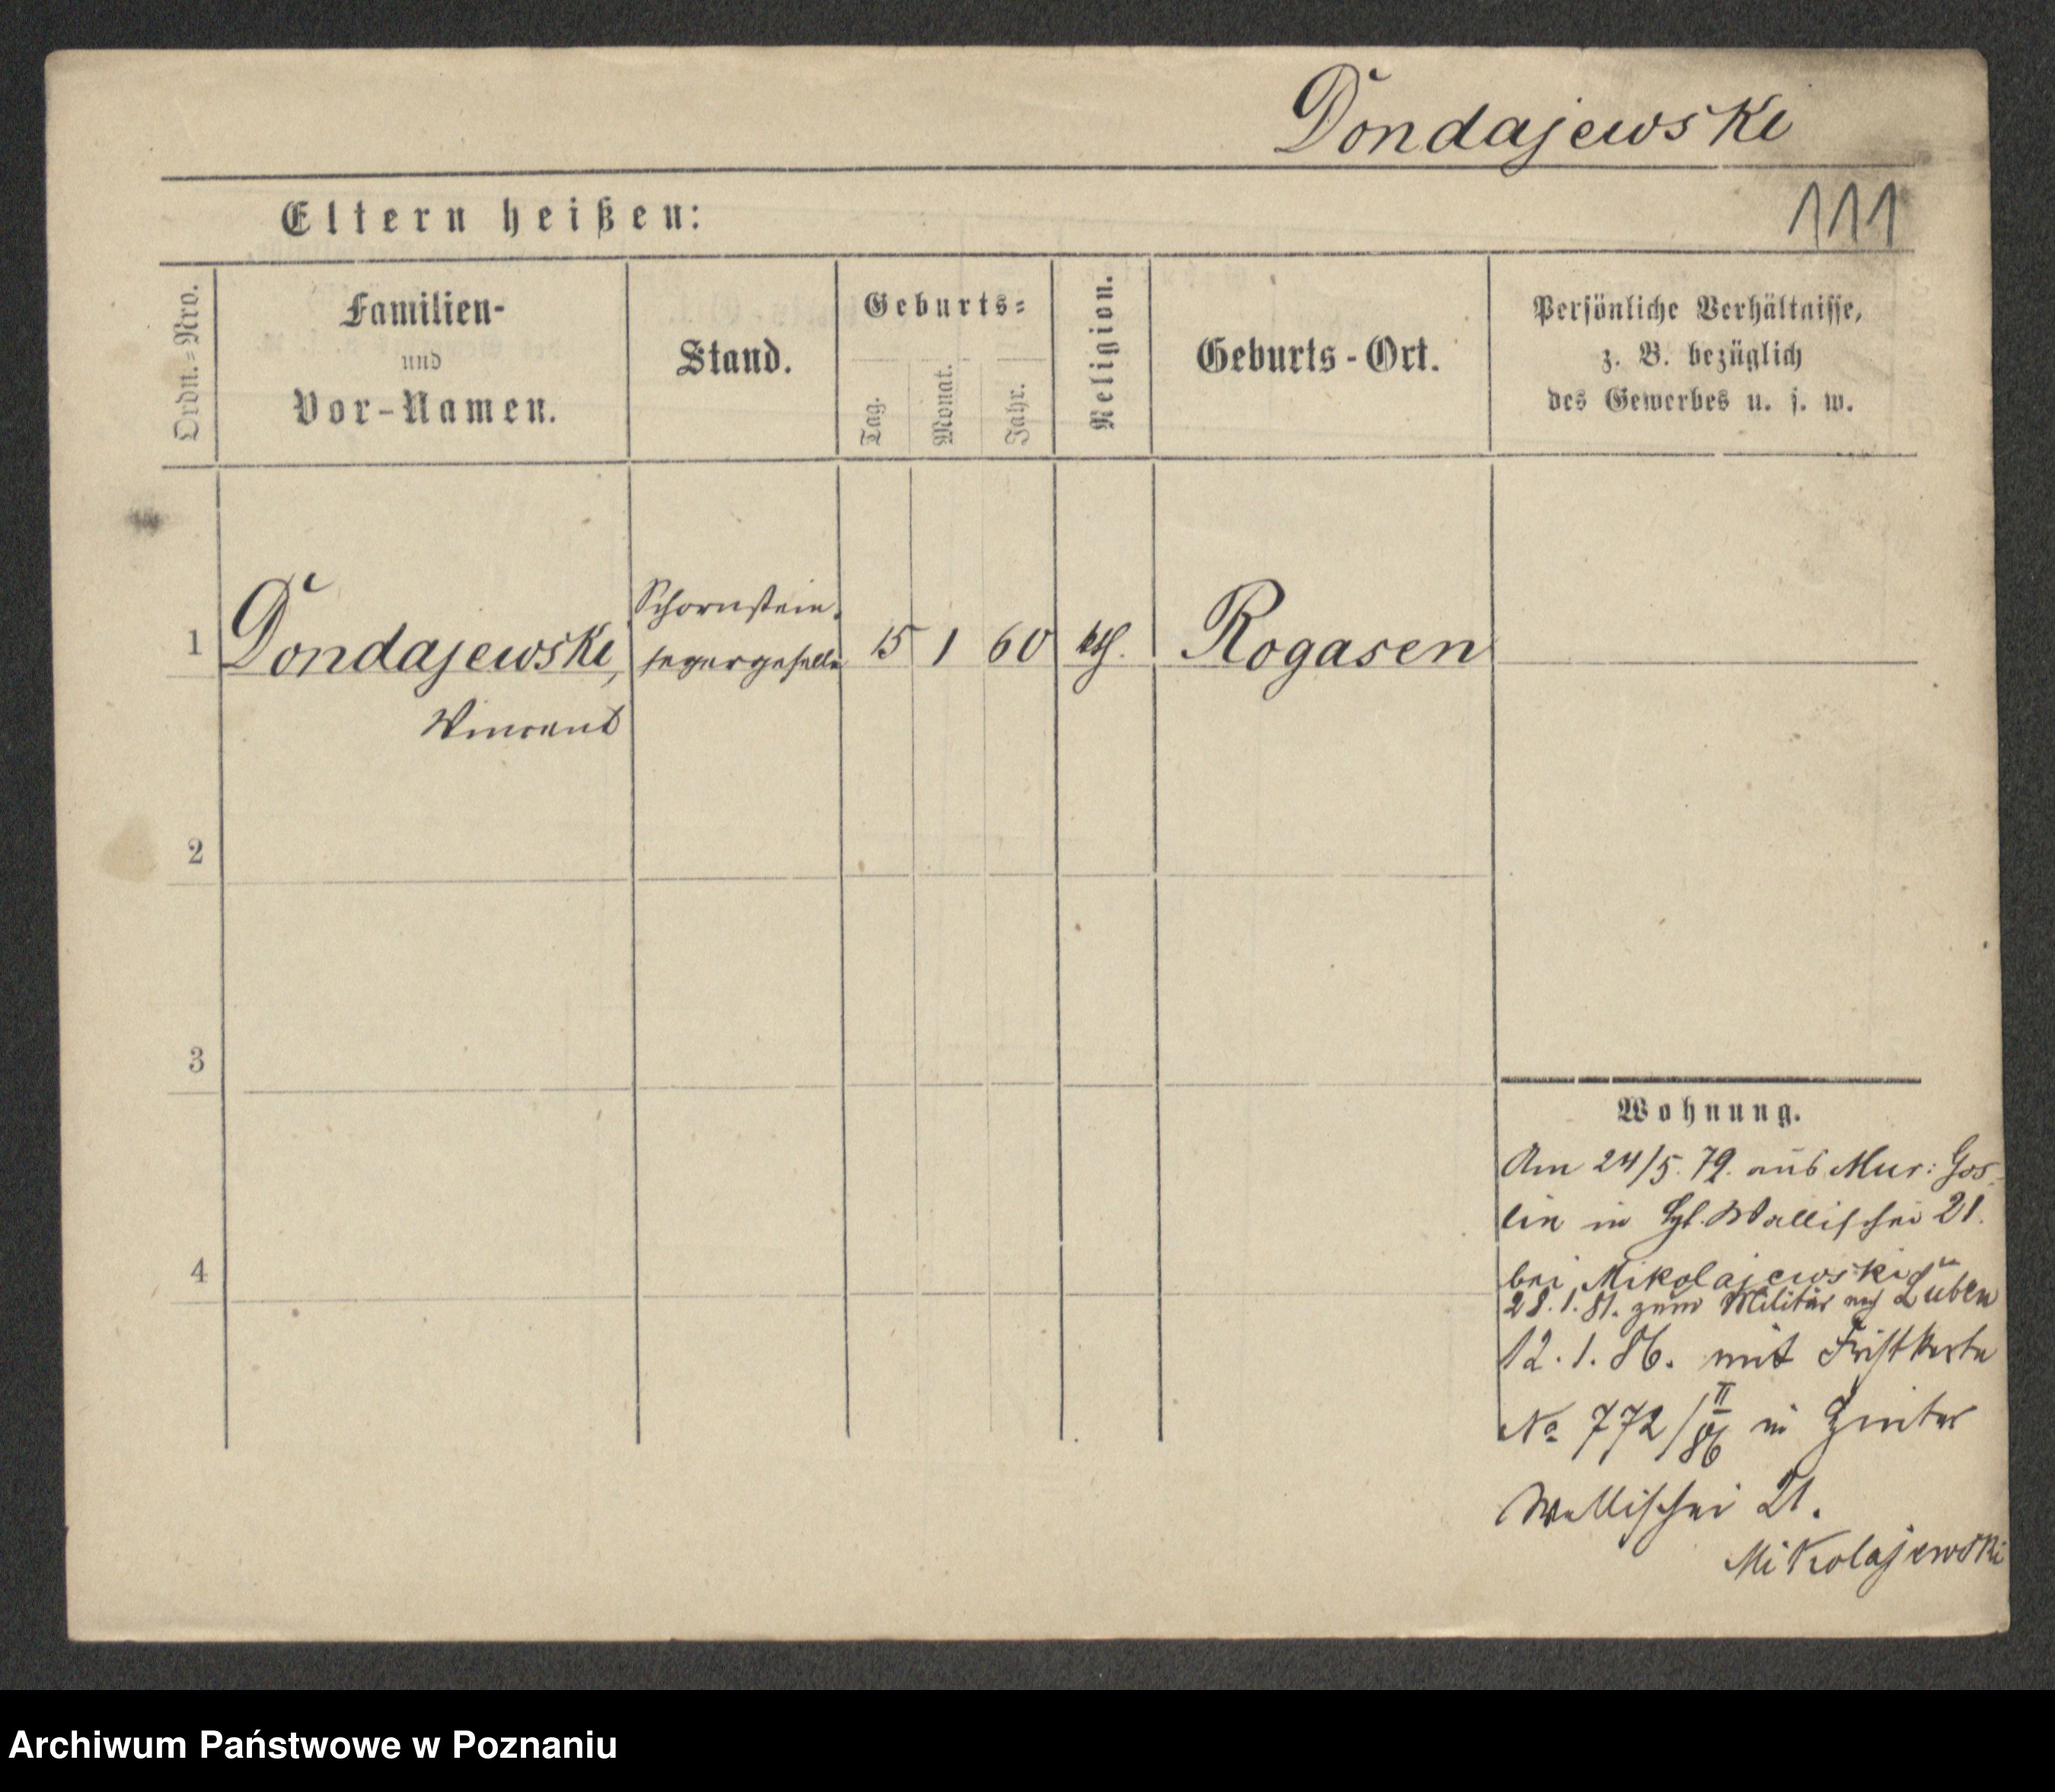 Dondajewski
111
Eltern heißen:
Ordn.=Nro.
Familien-
und
Vor-Namen.
Stand.
Geburts=
Tag.
Monat.
Jahr.
Religion.
Geburts-Ort.
Persönliche Verhältnisse,
z. B. bezüglich
des Gewerbes u. s. w.
1
Dondajewski,
Vincent
Schornstein-
fegergeselle
15
1
60
kth.
Rogasen
2
3
4
Wohnung.
Am 24/5. 79. aus Mur: Gos-
lin in Wallischei 21.
bei Mikolajewski
28.1.81. zum Militär nach Lüben
12.1.86. mit Fristkarte
No 772/II/86 in
Wallischei 21.
Mikolajewski
Archiwum Państwowe w Poznaniu